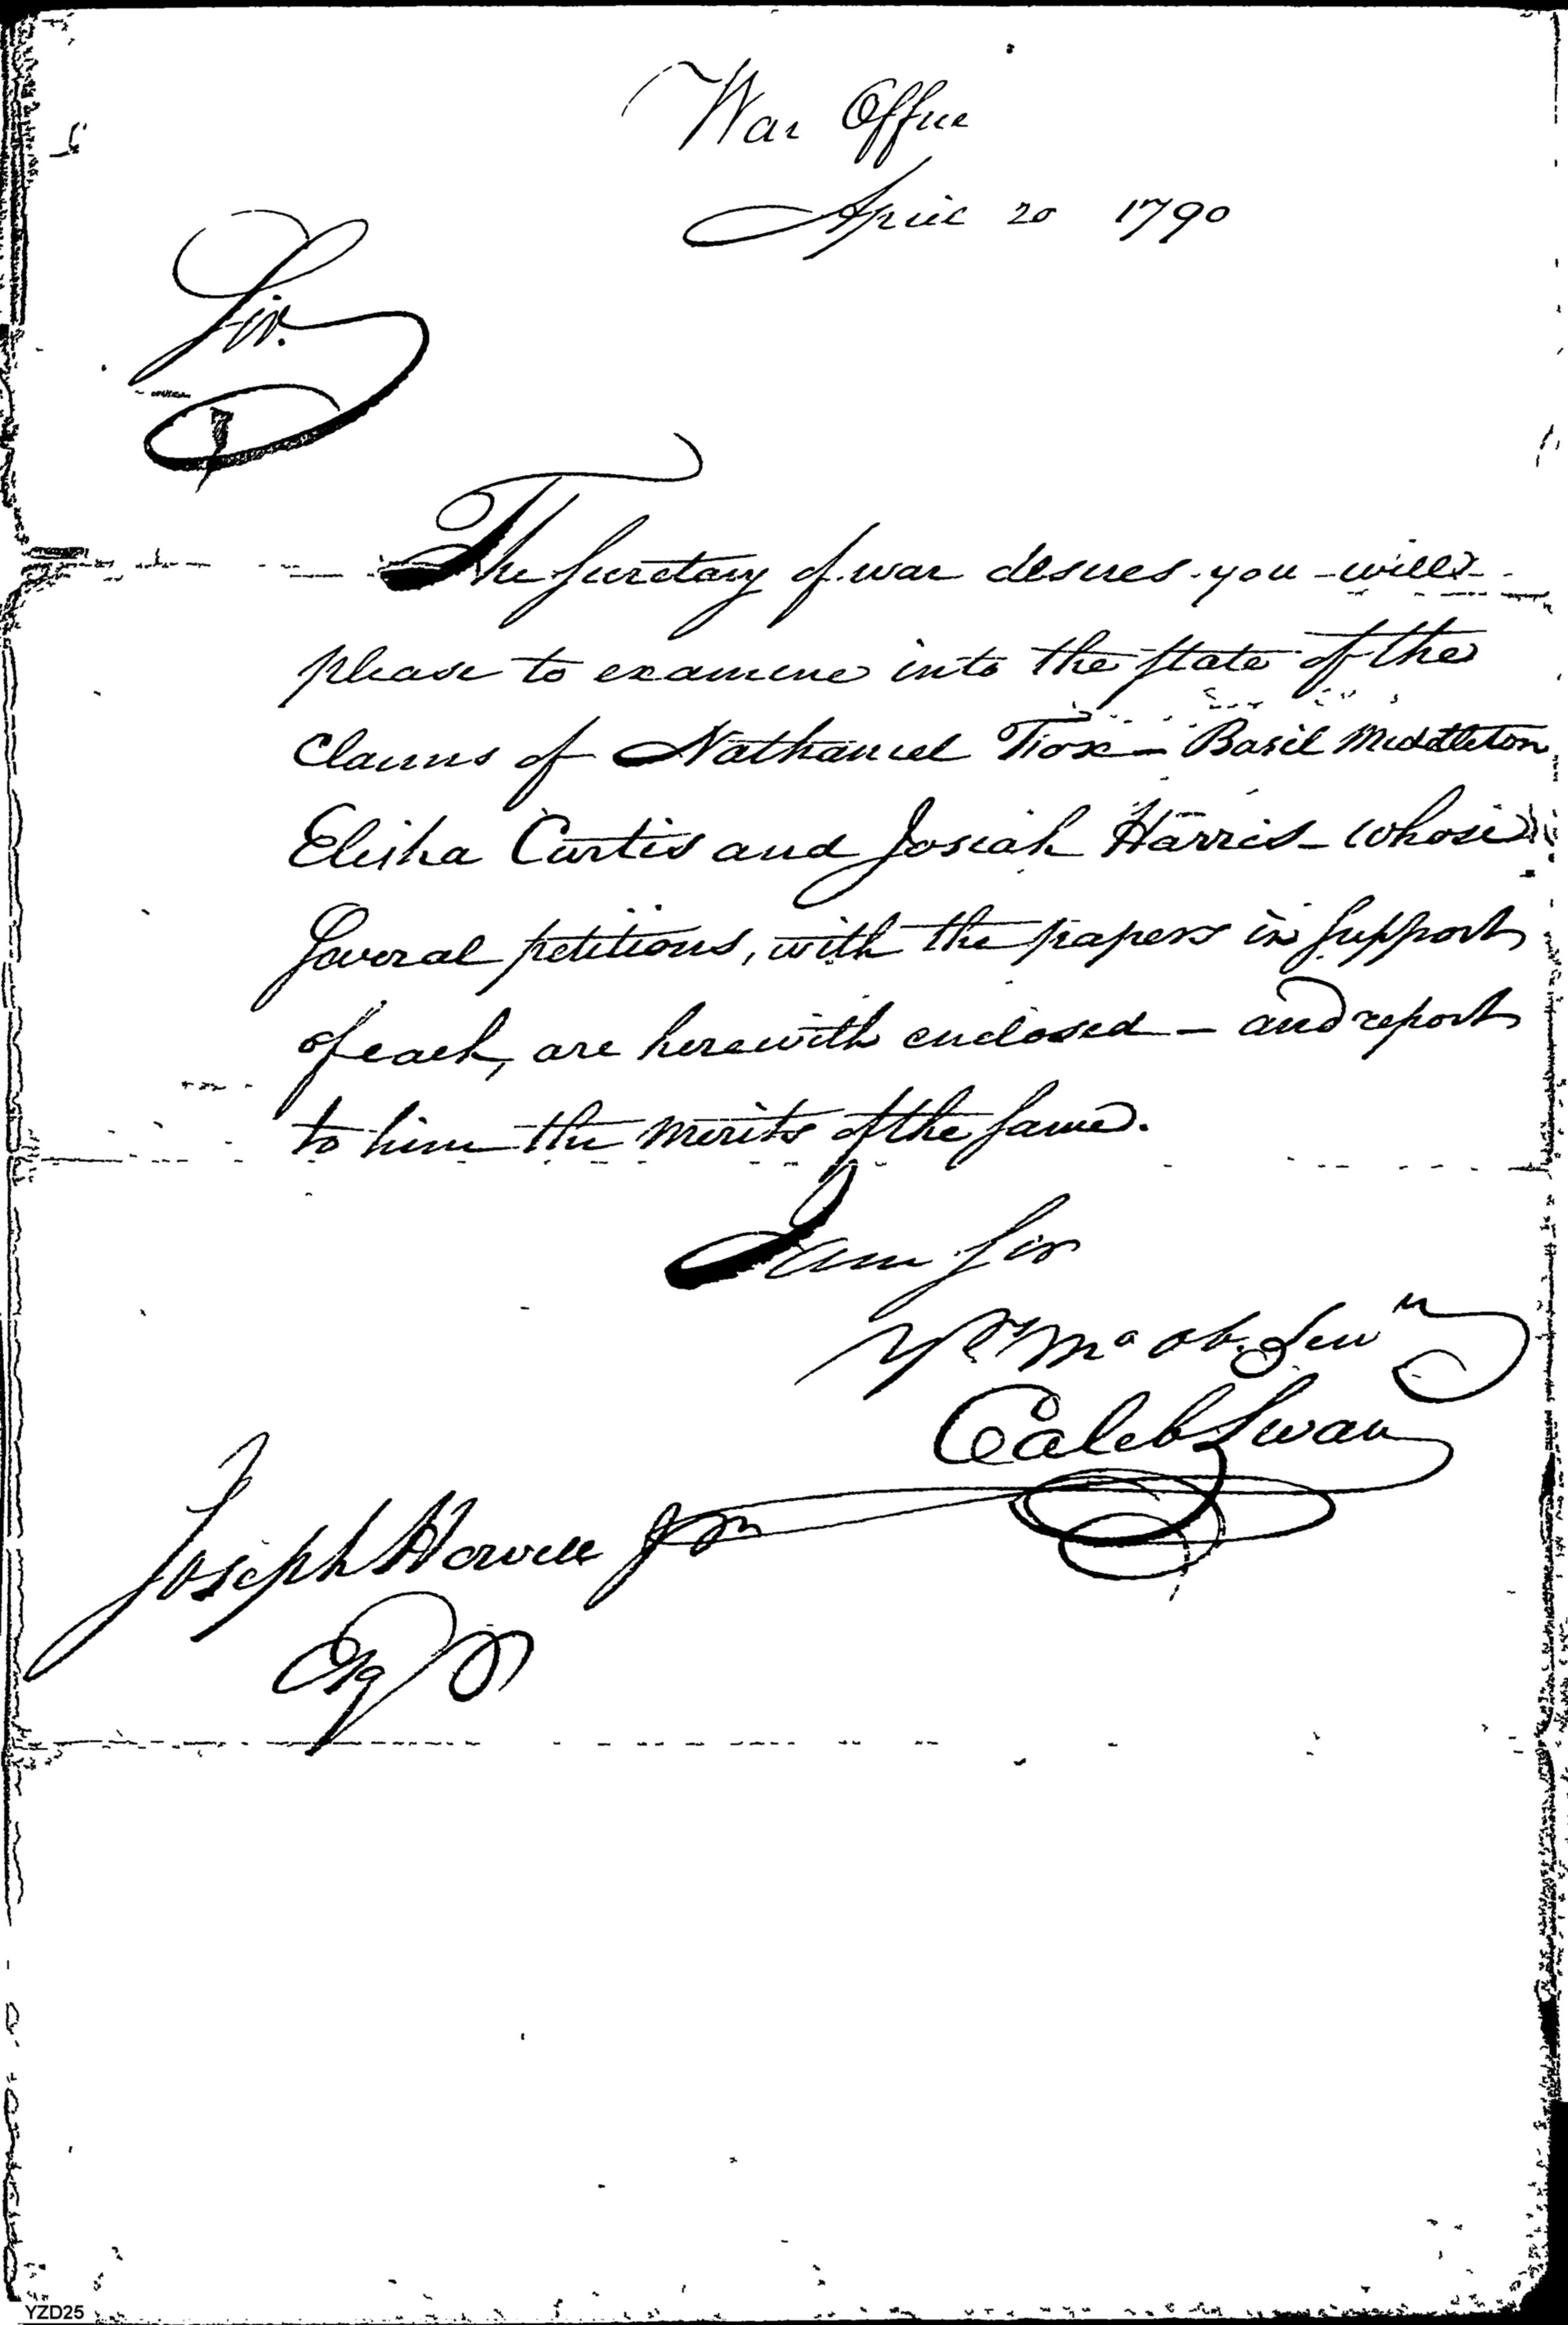 War Office
April 20 1790
Sir.
The Secretary of war desires you will
please to examine into the state of the
Claims of Nathaniel Tiox - Basil Middleton
Elisha Curtis and Josiah Harris - whose
Several petitions, with the papers in support
of each, are herewith enclosed - and report
to him the merits of the same.
I am Sir
Yr Mo ob. Serv
Caleb Swan
Joseph Howell Jr
Esqr
YZD25